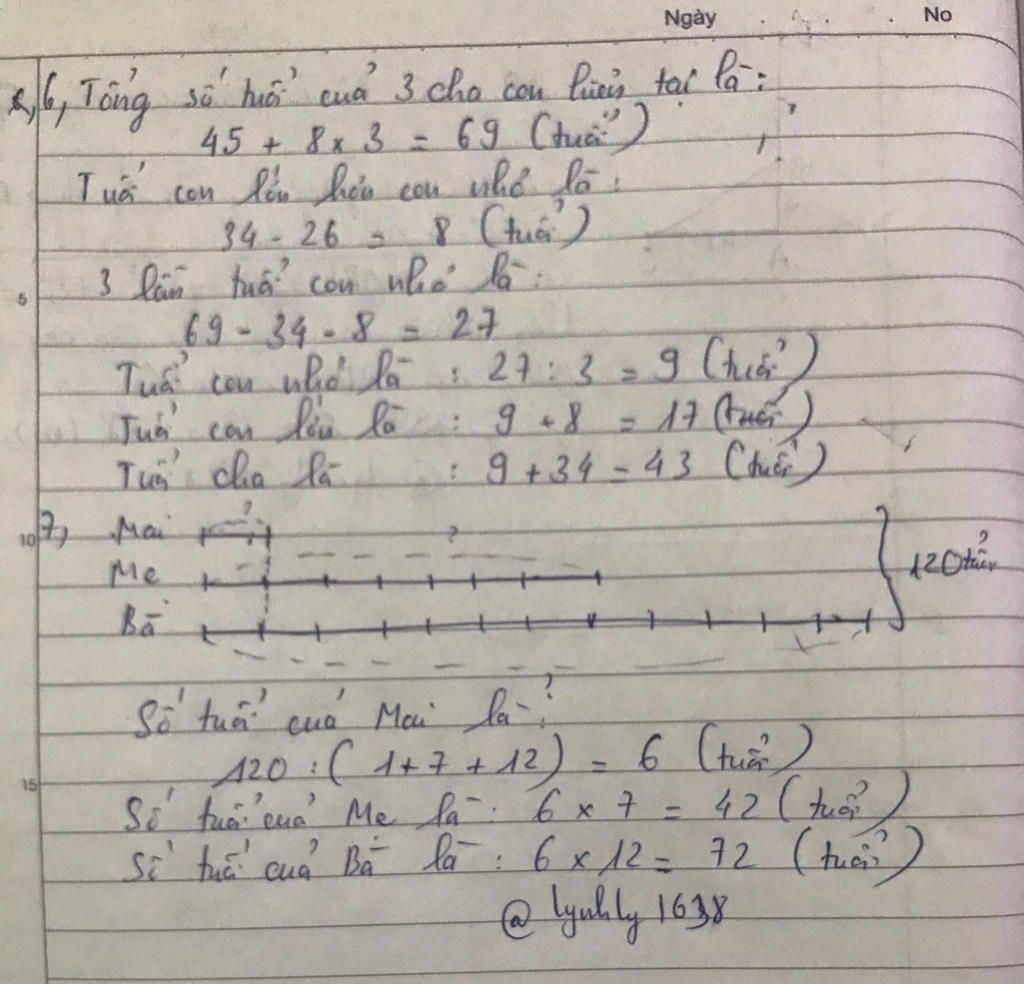 Ngày No
6, Tổng số tuổi của 3 cha con hiện tại là:
45 + 8 x 3 = 69 (tuổi)
Tuổi con lớn hơn con nhỏ là:
34 - 26 = 8 (tuổi)
3 lần tuổi con nhỏ là:
5
69 - 34 - 8 = 27
Tuổi con nhỏ là : 27 : 3 = 9 (tuổi)
Tuổi con lớn là : 9 + 8 = 17 (tuổi)
Tuổi cha là : 9 + 34 = 43 (tuổi)
10 7, Mai ? ?
Mẹ 120 tuổi
Bà
?
Số tuổi của Mai là:
120 : ( 1 + 7 + 12 ) = 6 (tuổi)
15
Số tuổi của Mẹ là: 6 x 7 = 42 (tuổi)
Số tuổi của Bà là : 6 x 12 = 72 (tuổi)
@ lynhly 1638